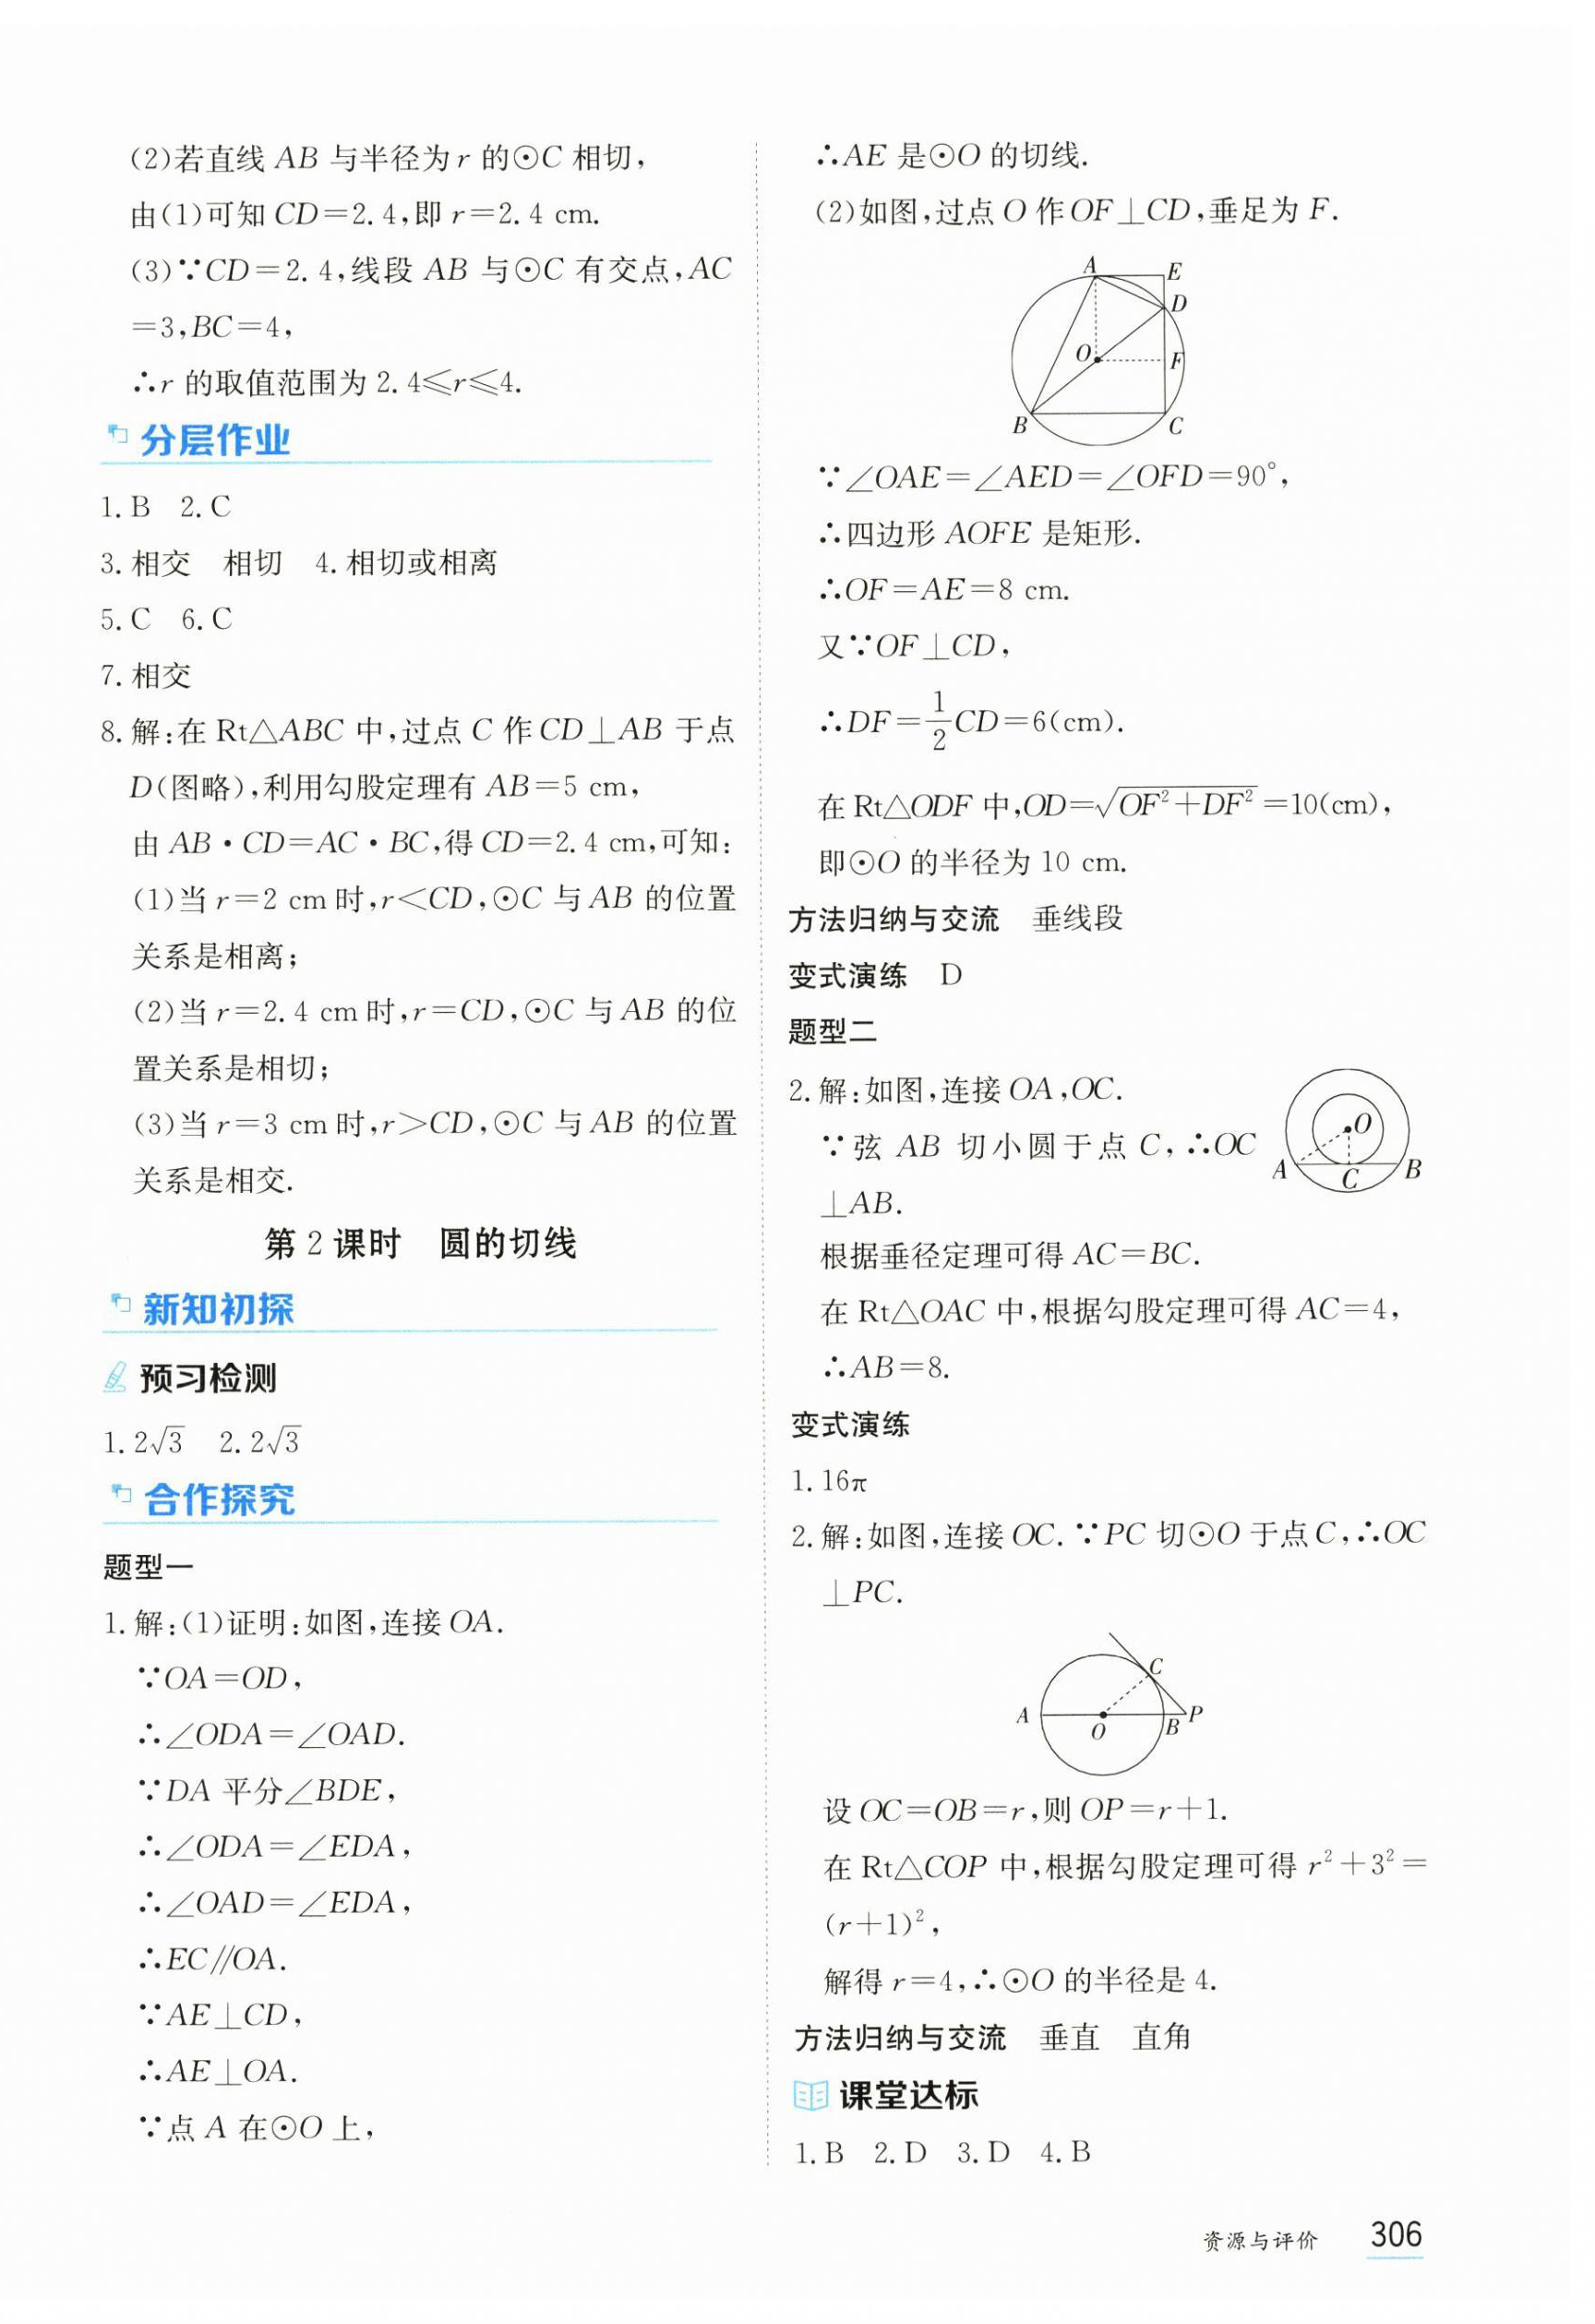 (2)若直线 AB 与半径为 r 的⊙C 相切,
由(1)可知 CD=2.4,即 r=2.4 cm.
(3)∵CD=2.4,线段 AB 与⊙C 有交点,AC
=3,BC=4,
∴r 的取值范围为 2.4≤r≤4.
分层作业
1.B 2.C
3.相交 相切 4.相切或相离
5.C 6.C
7.相交
8.解:在 Rt△ABC 中,过点 C 作 CD⊥AB 于点
D(图略),利用勾股定理有 AB=5 cm,
由 AB·CD=AC·BC,得 CD=2.4 cm,可知:
(1)当 r=2 cm 时,r<CD,⊙C 与 AB 的位置
关系是相离;
(2)当 r=2.4 cm 时,r=CD,⊙C 与 AB 的位
置关系是相切;
(3)当 r=3 cm 时,r>CD,⊙C 与 AB 的位置
关系是相交.
第 2 课时 圆的切线
新知初探
预习检测
1.2√3 2.2√3
合作探究
题型一
1.解:(1)证明:如图,连接 OA.
∵OA=OD,
∴∠ODA=∠OAD.
∵DA 平分∠BDE,
∴∠ODA=∠EDA,
∴∠OAD=∠EDA,
∴EC∥OA.
∵AE⊥CD,
∴AE⊥OA.
∵点 A 在⊙O 上,
∴AE 是⊙O 的切线.
(2)如图,过点 O 作 OF⊥CD,垂足为 F.
A E
D
O F
B C
∵∠OAE=∠AED=∠OFD=90°,
∴四边形 AOFE 是矩形.
∴OF=AE=8 cm.
又∵OF⊥CD,
∴DF=1/2CD=6(cm).
在 Rt△ODF 中,OD=√(OF²+DF²)=10(cm),
即⊙O 的半径为 10 cm.
方法归纳与交流 垂线段
变式演练 D
题型二
2.解:如图,连接 OA,OC.
∵弦 AB 切小圆于点 C,∴OC
⊥AB.
O
A C B
根据垂径定理可得 AC=BC.
在 Rt△OAC 中,根据勾股定理可得 AC=4,
∴AB=8.
变式演练
1.16π
2.解:如图,连接 OC.∵PC 切⊙O 于点 C,∴OC
⊥PC.
C
A O B P
设 OC=OB=r,则 OP=r+1.
在 Rt△COP 中,根据勾股定理可得 r²+3²=
(r+1)²,
解得 r=4,∴⊙O 的半径是 4.
方法归纳与交流 垂直 直角
课堂达标
1.B 2.D 3.D 4.B
资源与评价 306